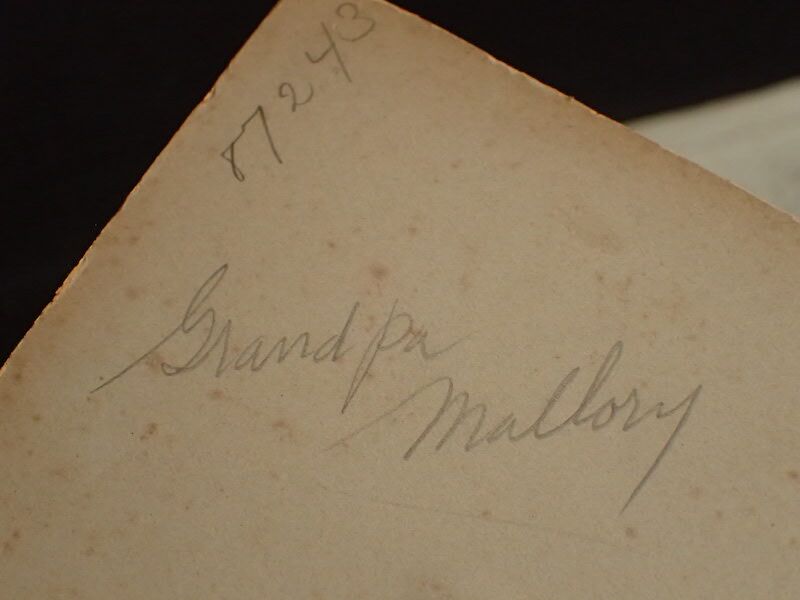 87243
Grandpa
Mallory